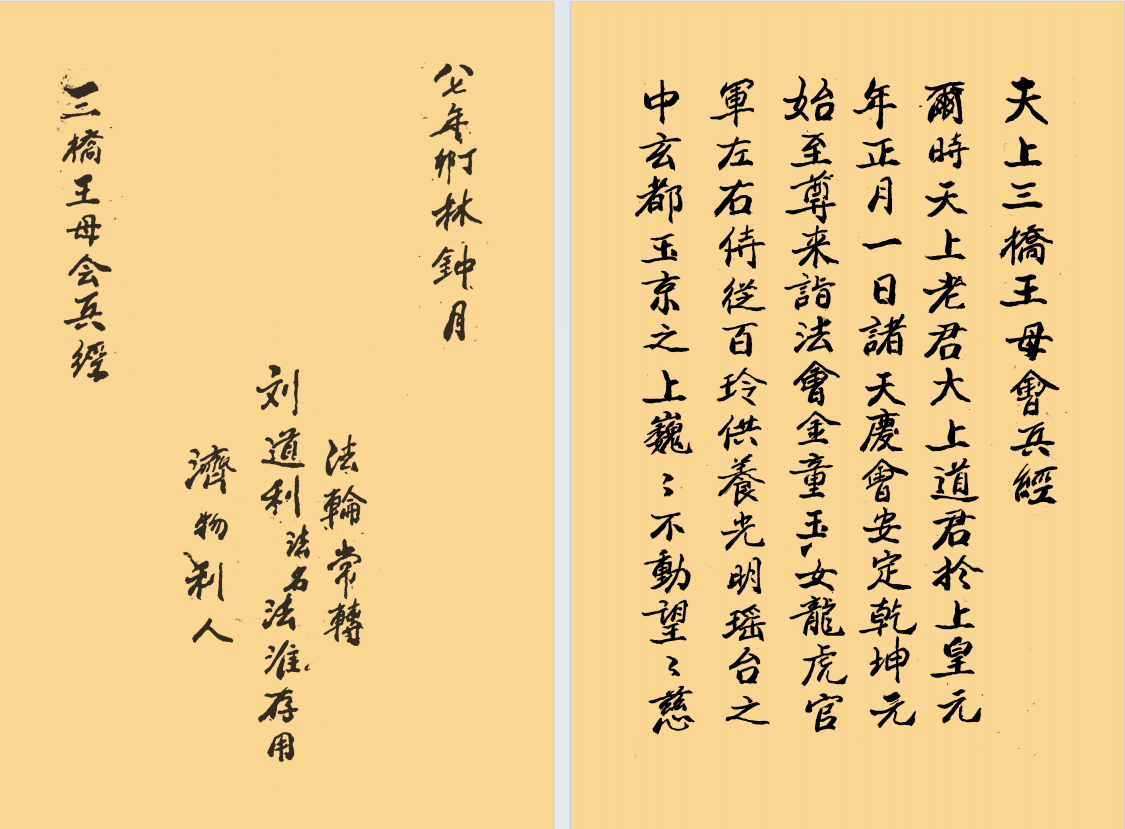 八七年卯丁林鈡月
法輪常轉
刘道利法名法淮存用
濟物利人
三橋王母会兵經
天上三橋王母會兵經
爾時天上老君大上道君於上皇元
年正月一日諸天慶會安定乾坤元
始至尊来詣法會金童玉女龍虎官
軍左右侍從百玲供養光明瑶台之
中玄都玉京之上巍〻不動望〻慈